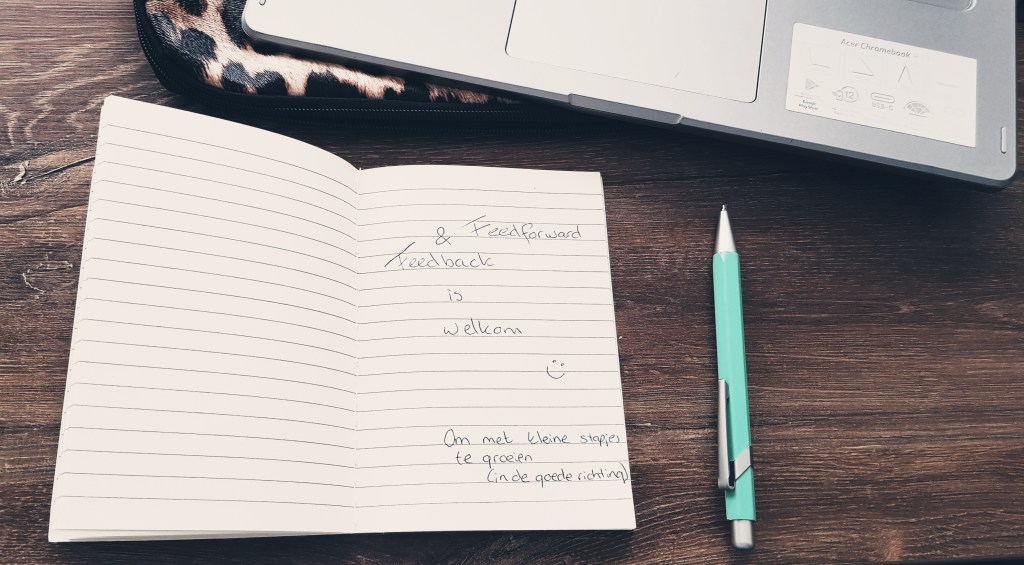 Acer Chromebook
12
USB-C
& Feedforward
Feedback
is
welkom
Om met kleine stapjes
te groeien
(in de goede richting)